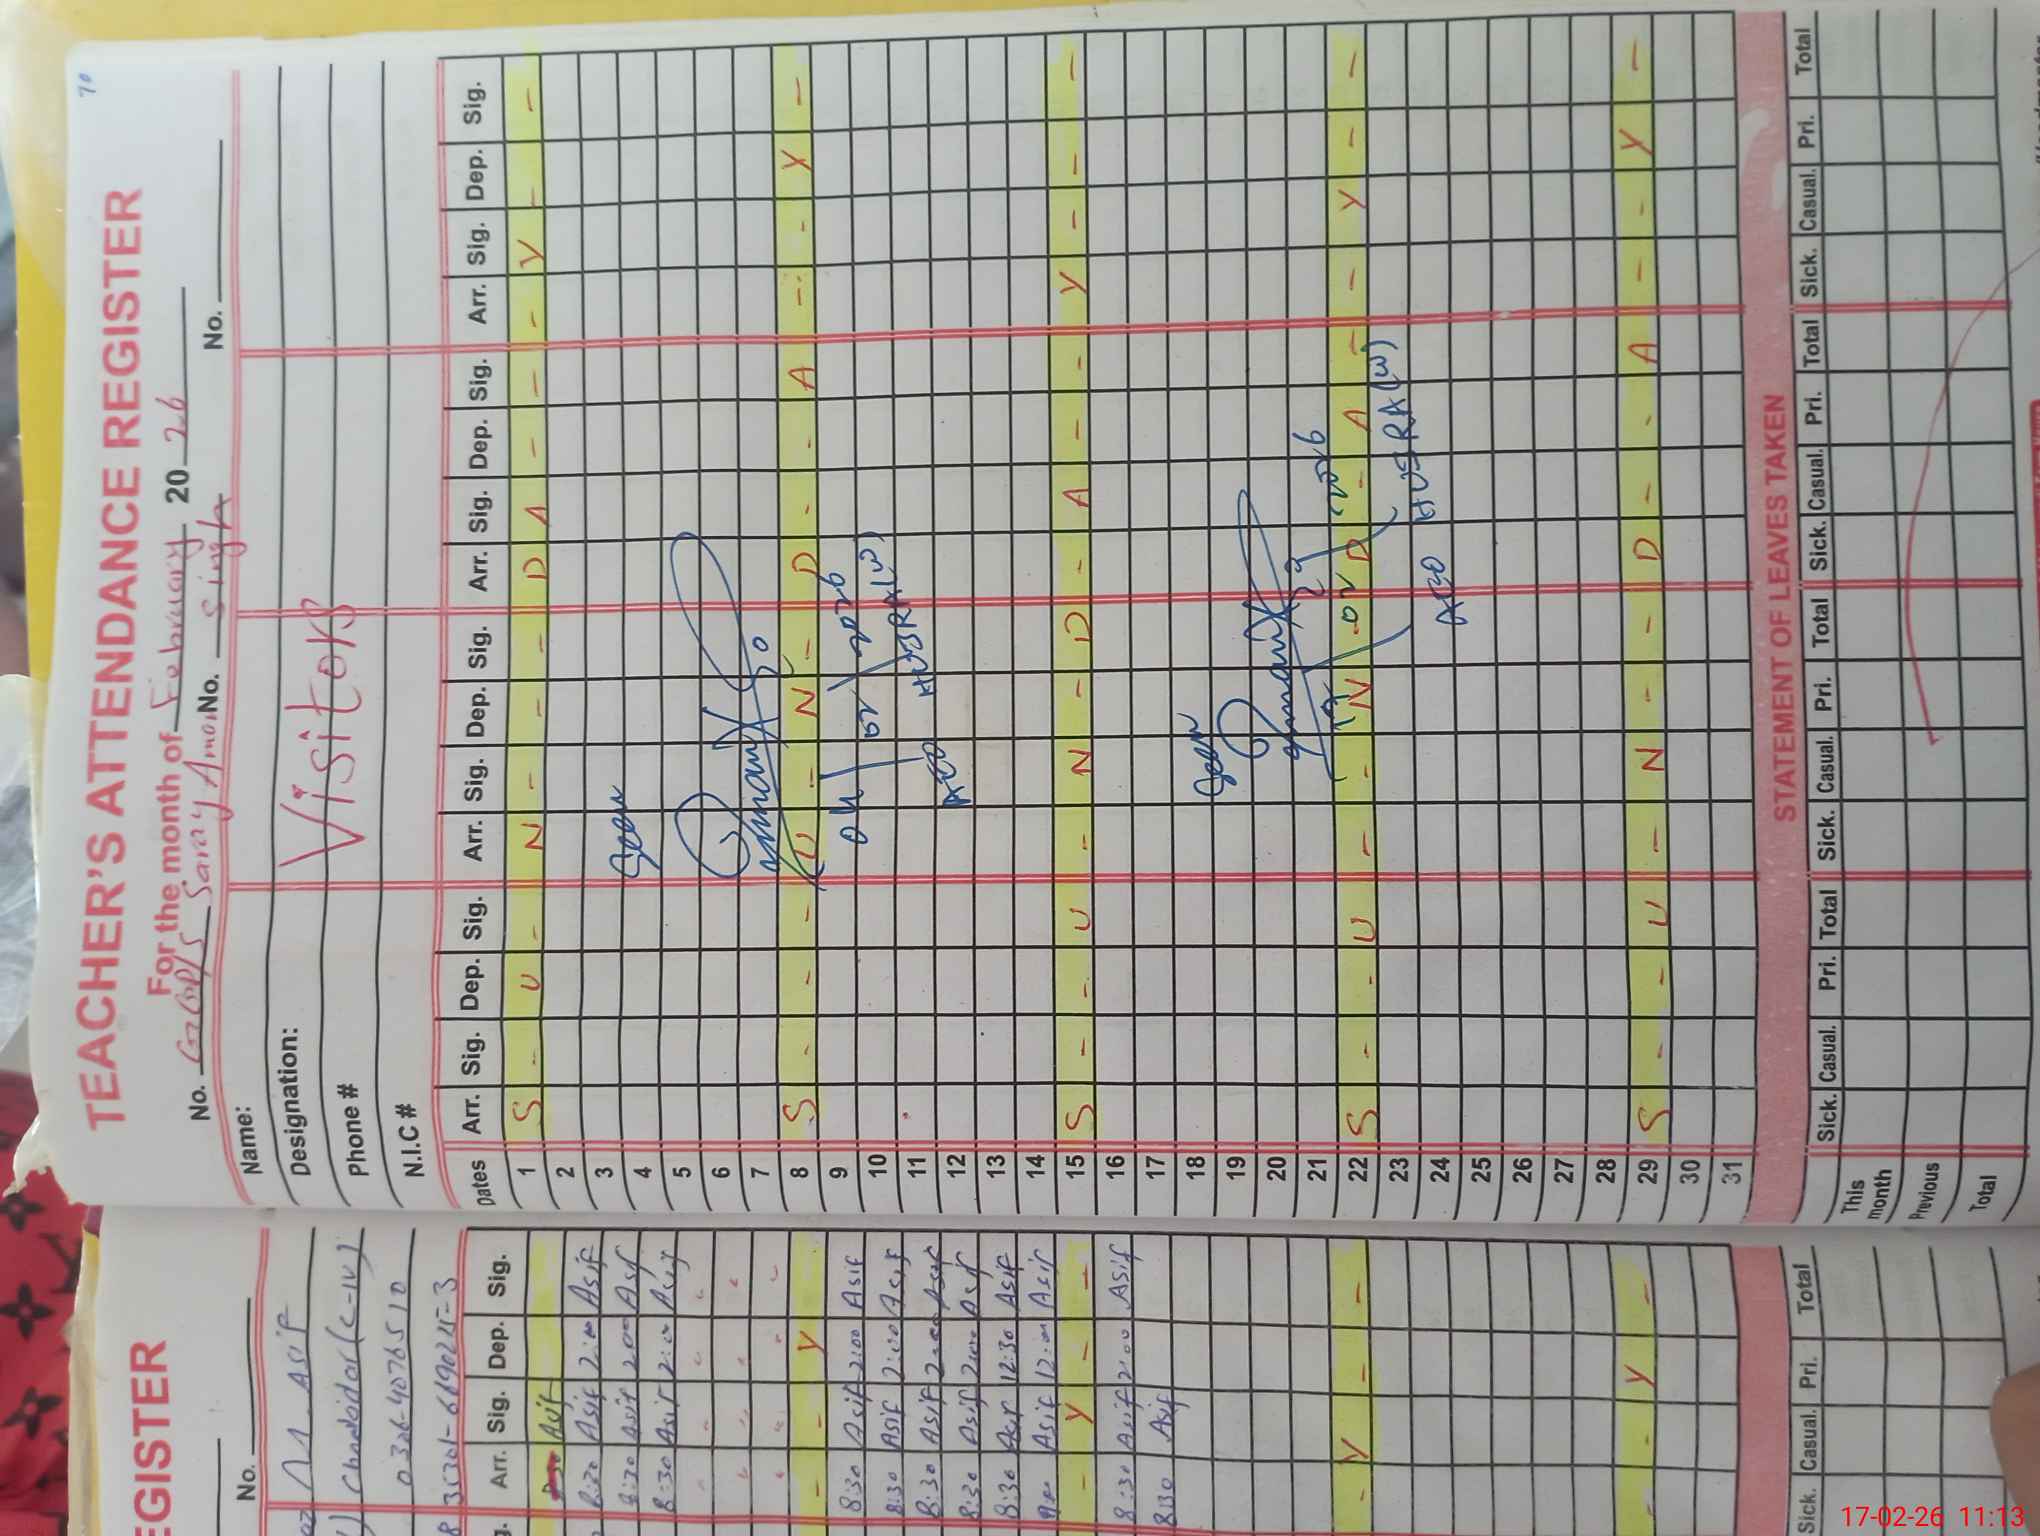 70
TEACHER'S ATTENDANCE REGISTER
For the month of February 2026
No. GGPS Saray Amar Singh No. No.
Name: Visitors
Designation:
Phone #
N.I.C #
Dates Arr. Sig. Dep. Sig. Arr. Sig. Dep. Sig. Arr. Sig. Dep. Sig. Arr. Sig. Dep. Sig.
1 S - U - N - - - D A - - - Y - -
2
3
4 Seen
5
6
7
8 S - - - U - N - D - - A - - Y -
9 04/02/2026
10
11 HUJRA(W)
12 AEO
13
14
15 S - - U - N - D - A - - Y - - -
16
17
18 Seen
19
20
21
22 S - - U - - N D - A - - Y - -
17/02/2026
23 HUJRA(W)
24 AEO
25
26
27
28
29 S - - U - N - - D - - A - - Y -
30
31
STATEMENT OF LEAVES TAKEN
Sick. Casual. Pri. Total Sick. Casual. Pri. Total Sick. Casual. Pri. Total Sick. Casual. Pri. Total
This month
Previous
Total
EGISTER
No.
M. Asif
Chowkidar (C-IV)
0306-4076510
Arr. Sig. Dep. Sig.
Asif
8:30 Asif 2:00 Asif
8:30 Asif 2:00 Asif
8:30 Asif 2:00 Asif
- - Y
8:30 Asif 2:00 Asif
8:30 Asif 2:00 Asif
8:30 Asif 2:00 Asif
8:30 Asif 2:00 Asif
8:30 Asif 12:30 Asif
9:00 Asif 12:00 Asif
- Y - -
8:30 Asif 2:00 Asif
8:30 Asif
- Y - -
- - Y -
Sick. Casual. Pri. Total
17-02-26 11:13